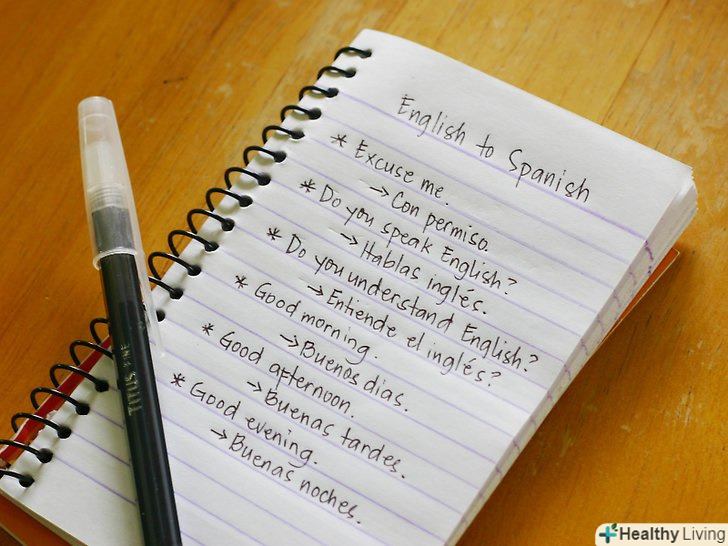 English to Spanish
* Excuse me.
→ Con permiso.
* Do you speak English?
→ Hablas inglés.
* Do you understand English?
→ Entiende el inglés?
* Good morning.
→ Buenos dias.
* Good afternoon.
→ Buenas tardes.
* Good evening.
→ Buenas noches.
TITUS FINE
Healthy Living